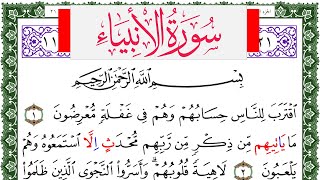 سُورَةُ الْأَنْبِيَاءِ
بِسْمِ اللَّهِ الرَّحْمَٰنِ الرَّحِيمِ
اقْتَرَبَ لِلنَّاسِ حِسَابُهُمْ وَهُمْ فِي غَفْلَةٍ مُعْرِضُونَ ١
مَا يَأْتِيهِم مِّن ذِكْرٍ مِّن رَّبِّهِم مُّحْدَثٍ إِلَّا اسْتَمَعُوهُ وَهُمْ
يَلْعَبُونَ ٢ لَاهِيَةً قُلُوبُهُمْ وَأَسَرُّوا النَّجْوَى الَّذِينَ ظَلَمُوا